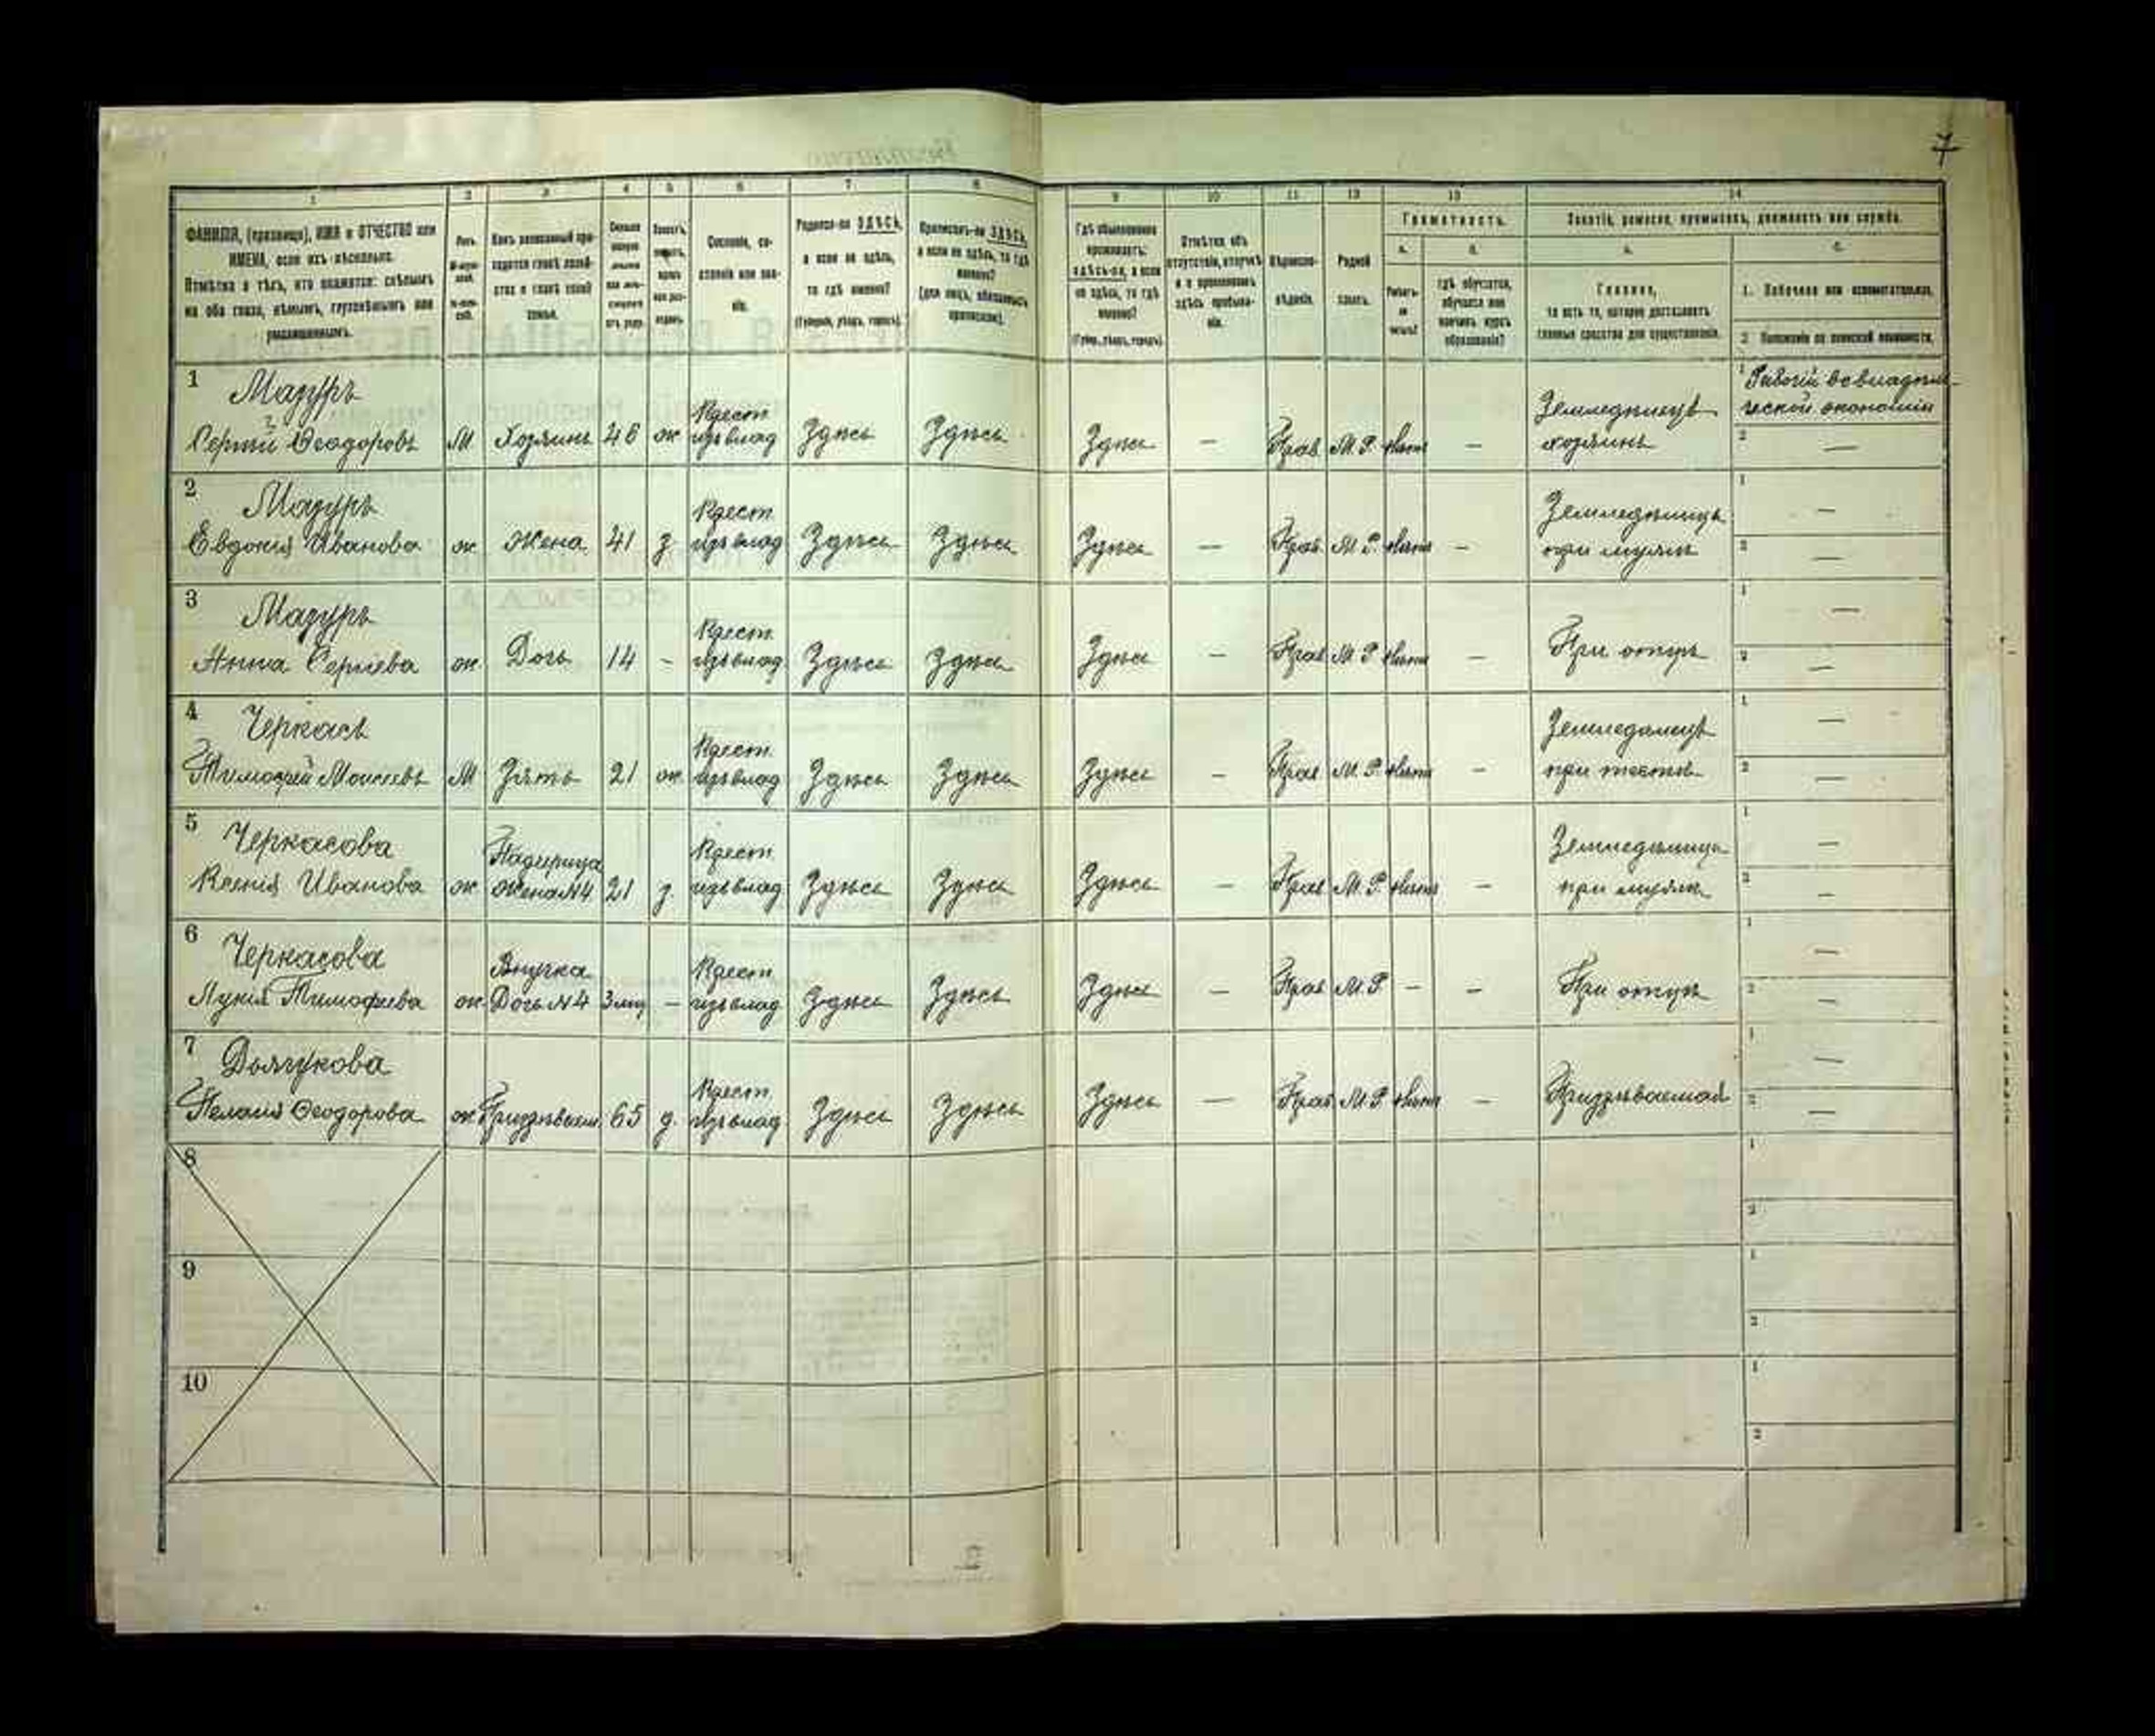 7
1 2 3 4 5 6 7 8 9 10 11 12 13 14
ФАМИЛІЯ, (прозвище), ИМЯ и ОТЧЕСТВО или
ИМЕНА, если ихъ нѣсколько.
Отмѣтка о тѣхъ, кто окажется: слѣпымъ
на оба глаза, нѣмымъ, глухонѣмымъ или
умалишеннымъ.
Полъ.
Какъ записанный при-
ходится главѣ хозяй-
ства и главѣ своей
семьи.
Сословіе, со-
стояніе или зва-
ніе.
Родился-ли ЗДѢСЬ,
а если не здѣсь,
то гдѣ именно?
(Губернія, уѣздъ, городъ).
Приписанъ-ли ЗДѢСЬ,
а если не здѣсь, то гдѣ
именно?
(для лицъ, обязанныхъ
припискою).
Гдѣ обыкновенно
проживаетъ:
здѣсь-ли, а если
не здѣсь, то гдѣ
именно?
(Губер., уѣздъ, городъ).
Отмѣтка объ
отсутствіи, отлучкѣ
и о временномъ
здѣсь пребыва-
ніи.
Вѣроиспо-
вѣданіе.
Родной
языкъ.
Грамотность.
а. б.
Умѣетъ-
ли
читать?
гдѣ обучается,
обучался или
кончилъ курсъ
образованія?
Занятіе, ремесло, промыселъ, должность или служба.
а. б.
Главное,
то есть то, которое доставляетъ
главныя средства для существованія.
1. Побочное или вспомогательное.
2. Положеніе по воинской повинности.
1 Мазуръ
Сергій Ѳеодоровъ М Хозяинъ 46 ж Крест. изъ влад Здѣсь Здѣсь Здѣсь — Прав М.Р. нѣтъ — Земледѣлецъ хозяинъ 1 Рабочій въ владѣль-
ческой экономіи
2 —
2 Мазуръ
Евдокія Иванова ж Жена 41 з. Крест. изъ влад Здѣсь Здѣсь Здѣсь — Прав. М.Р. нѣтъ — Земледѣлица при мужѣ 1 —
2 —
3 Мазуръ
Анна Сергіева ж Дочь 14 - Крест. изъ влад. Здѣсь Здѣсь Здѣсь — Прав М.Р нѣтъ — При отцѣ 1 —
2 —
4 Черкасъ
Тимофей Моисеевъ М Зять 21 ж Крест. изъ влад Здѣсь Здѣсь Здѣсь — Прав М.Р. нѣтъ — Земледѣлецъ при тестѣ 1 —
2 —
5 Черкасова
Ксенія Иванова ж Падчерица жена №4 21 з. Крест. изъ влад. Здѣсь Здѣсь Здѣсь — Прав М.Р. нѣтъ — Земледѣлица при мужѣ 1 —
2 —
6 Черкасова
Лукія Тимофеева ж Внучка Дочь №4 3 мц — Крест. изъ влад Здѣсь Здѣсь Здѣсь — Прав М.Р — — При отцѣ 1 —
2 —
7 Долгукова
Пелагія Ѳеодорова ж Призрѣваем. 65 д. Крест. изъ влад Здѣсь Здѣсь Здѣсь — Прав. М.Р нѣтъ — Призрѣваемая 1 —
2 —
8 1
2
9 1
2
10 1
2